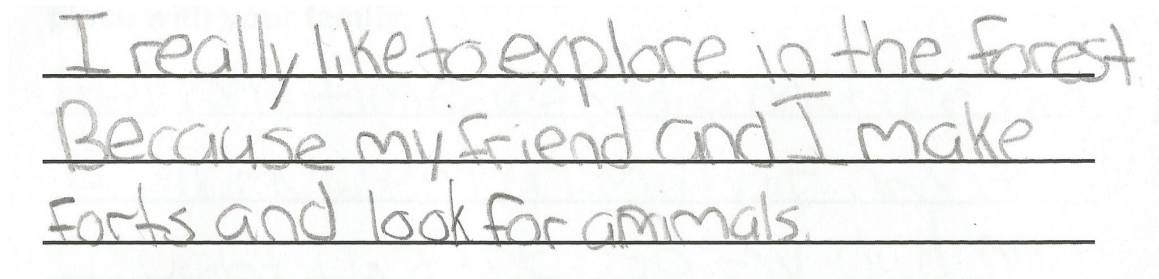 I really like to explore in the forest.
Because my friend and I make
forts and look for amimals.